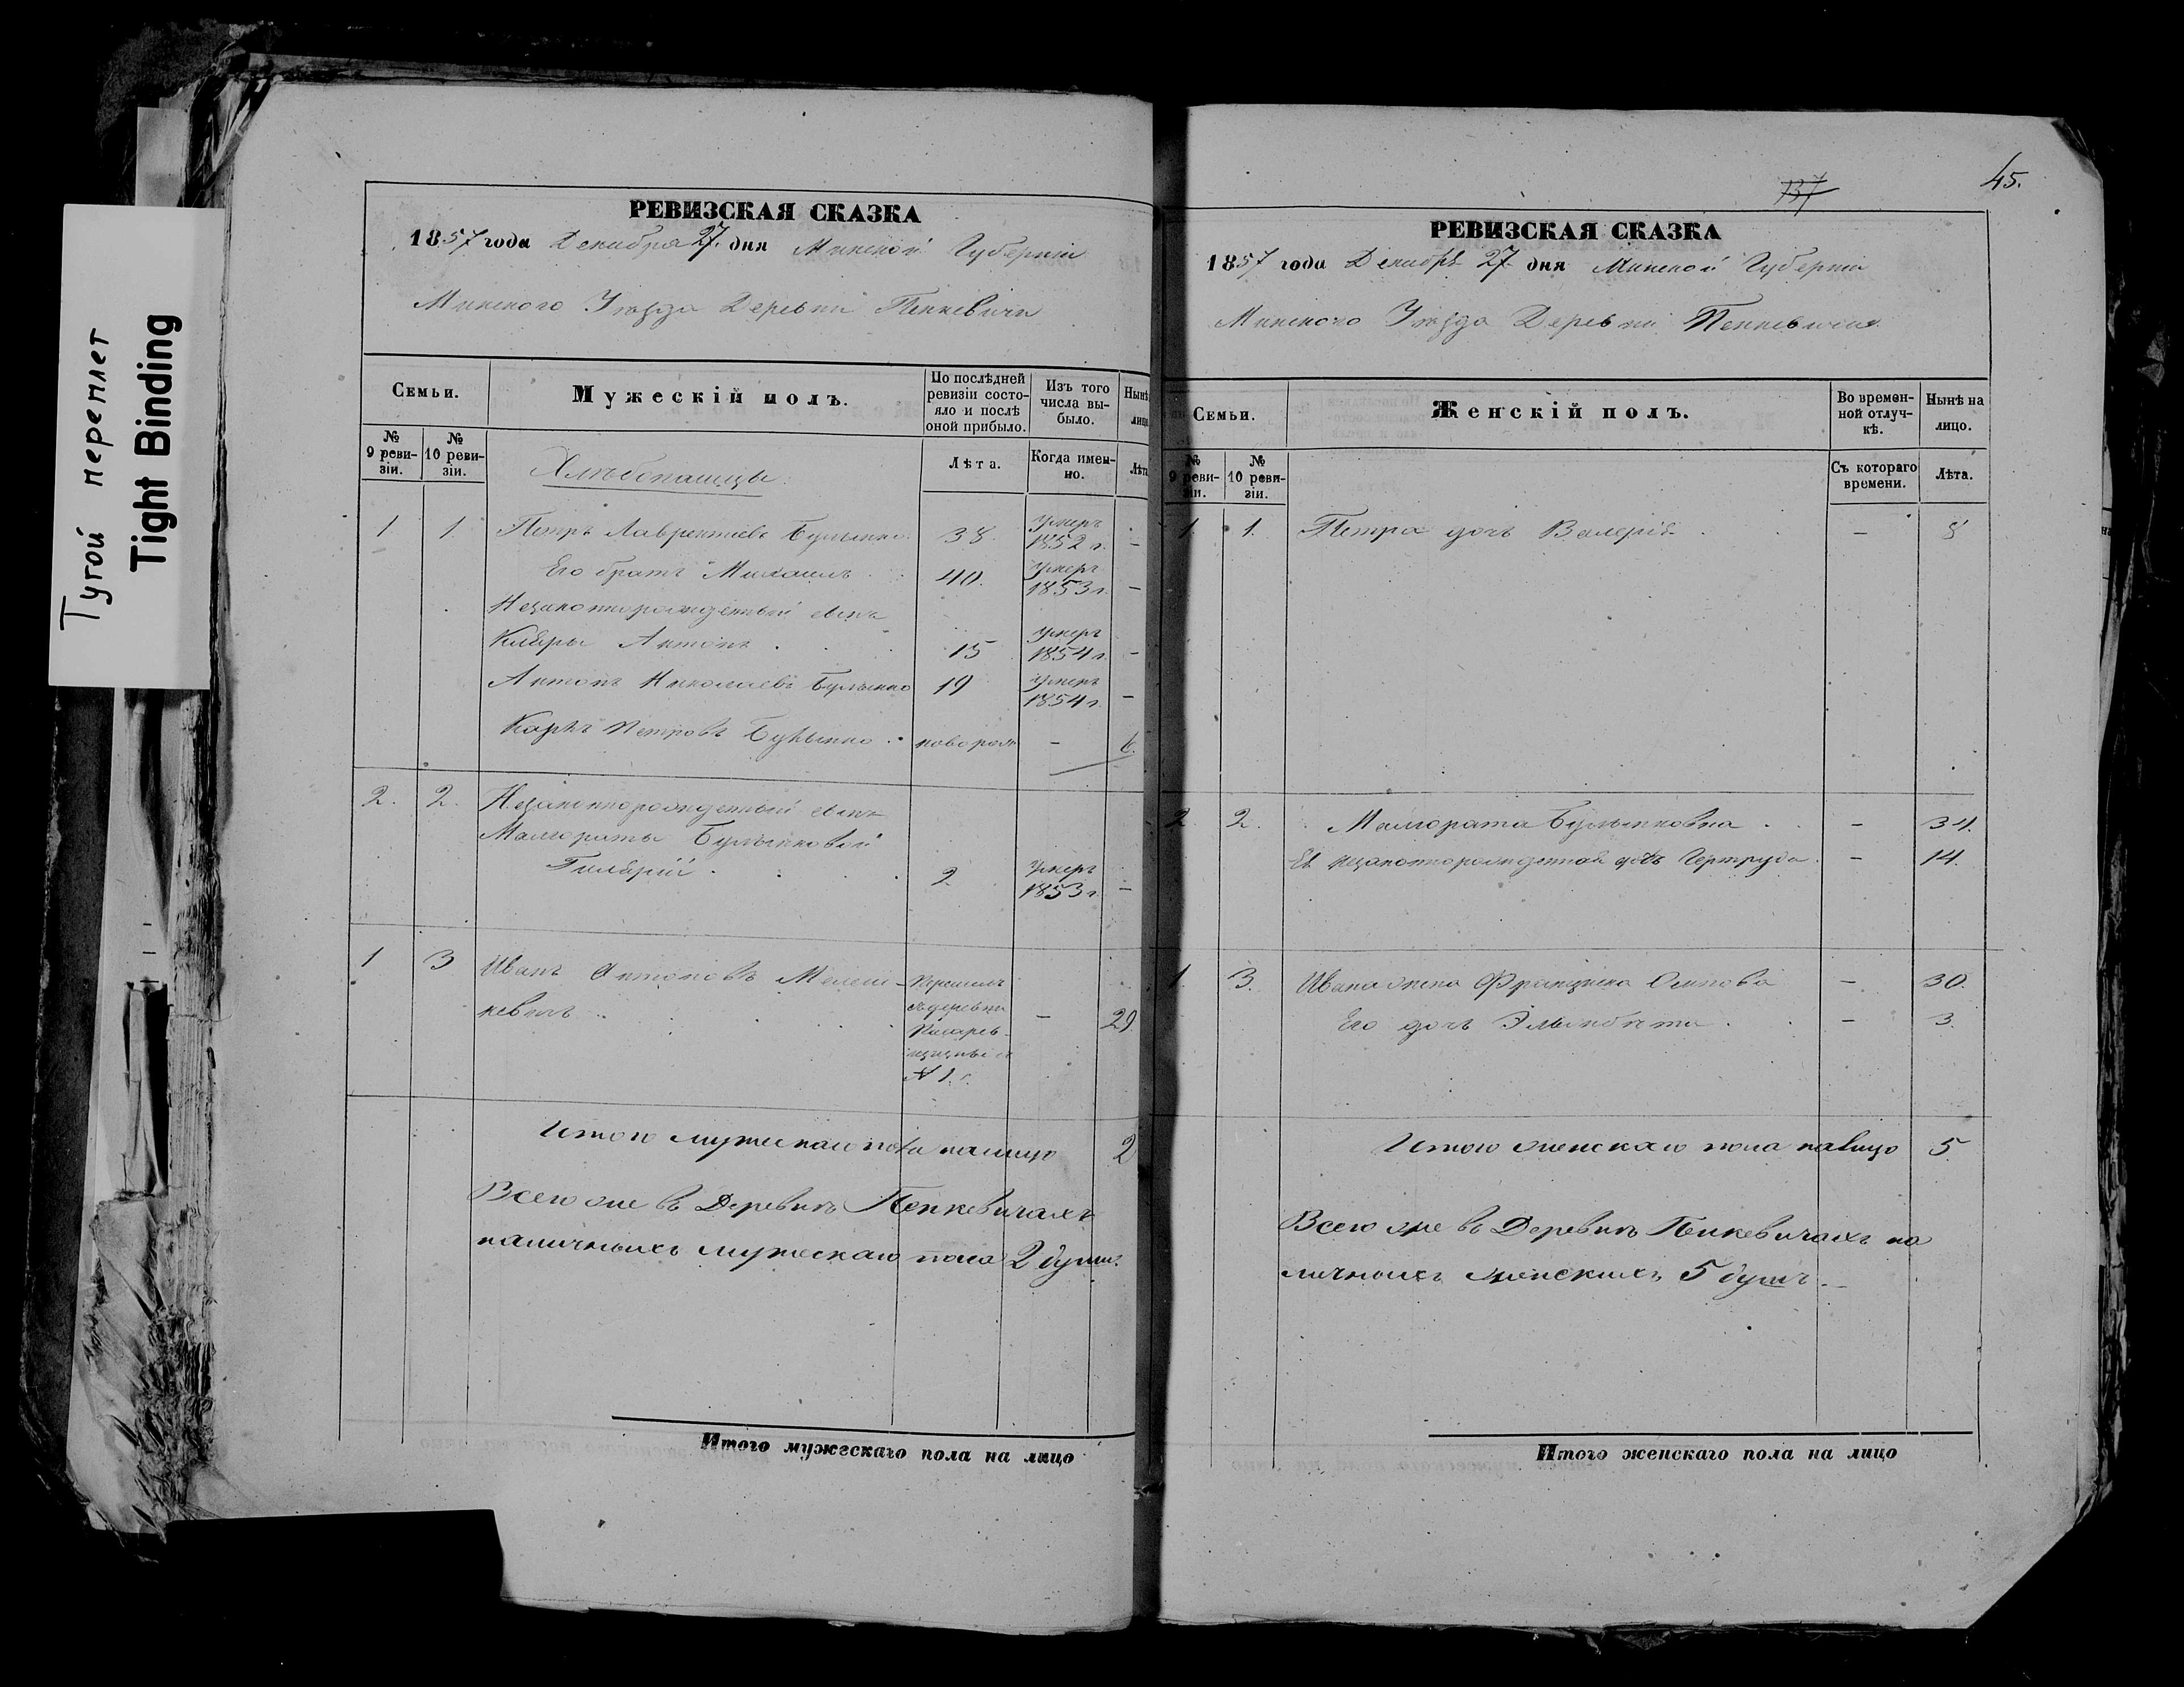 Тугой переплет
Tight Binding
РЕВИЗСКАЯ СКАЗКА
1857 года Декабря 27. дня Минской Губерніи
Минского Уѣзда Деревни Пенкевичи
Семьи.
Мужескій полъ.
По послѣдней ревизіи состо-
яло и послѣ оной прибыло.
Изъ того числа вы-
было.
Нынѣ
лицо
№ 9 реви-
зіи.
№ 10 реви-
зіи.
Хлѣбопашцы.
Лѣта.
Когда имен-
но.
Лѣта
1 1. Петръ Лаврентіевъ 38. умеръ 1852 г. –
Его братъ Михаилъ 40. умеръ 1853 г. –
Незаконнорожденный сынъ
Клары Антонъ 15 умеръ 1854 г. –
Антонъ Николаевъ 19 умеръ 1854 г. –
Карлъ Петровъ новорож – 6.
2. 2. Незаконнорожденный сынъ
Малгораты
Гиларій 2 умеръ 1853 г. –
1 3 Иванъ Антоновъ
кевичъ – 29
деревни
№ 1.
Итого мужескаго пола налицо 2
Всего же въ Деревнѣ Пенкевичахъ
наличныхъ мужескаго пола 2 души.
Итого мужескаго пола на лицо
137
45.
РЕВИЗСКАЯ СКАЗКА
1857 года Декабря 27 дня Минской Губерніи
Минского Уѣзда Деревни Пенкевичи
Семьи.
Женскій полъ.
Во времен-
ной отлуч-
кѣ.
Нынѣ на
лицо.
№ 9 реви-
зіи.
№ 10 реви-
зіи.
Съ котораго
времени.
Лѣта.
1. 1. Петра дочь Валерія – 8
2 2. Малгората –  34.
Ея незаконнорожденная дочь Гертруда – 14.
1 3. Ивана жена Францишка Осипова – 30.
Его дочь Эльжбѣта – 3.
Итого женскаго пола налицо 5
Всего же въ Деревнѣ Пенкевичахъ на
личныхъ женскихъ 5 душъ.
Итого женскаго пола на лицо